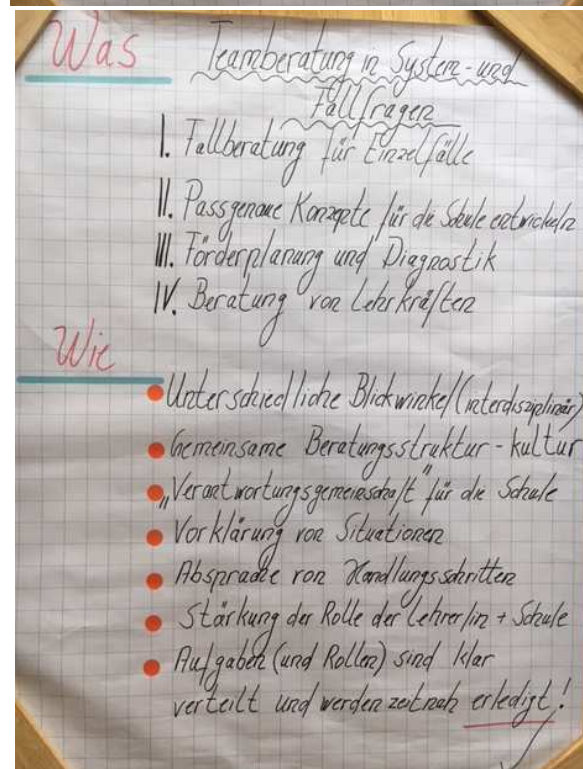 Was
Teamberatung in System- und
Fallfragen
I. Fallberatung für Einzelfälle
II. Passgenaue Konzepte für die Schule entwickeln
III. Förderplanung und Diagnostik
IV. Beratung von Lehrkräften
Wie
Unterschiedliche Blickwinkel (interdisziplinär)
Gemeinsame Beratungsstruktur - kultur
„Verantwortungsgemeinschaft" für die Schule
Vorklärung von Situationen
Absprache von Handlungsschritten
Stärkung der Rolle der Lehrer/in + Schule
Aufgaben (und Rollen) sind klar
verteilt und werden zeitnah erledigt!